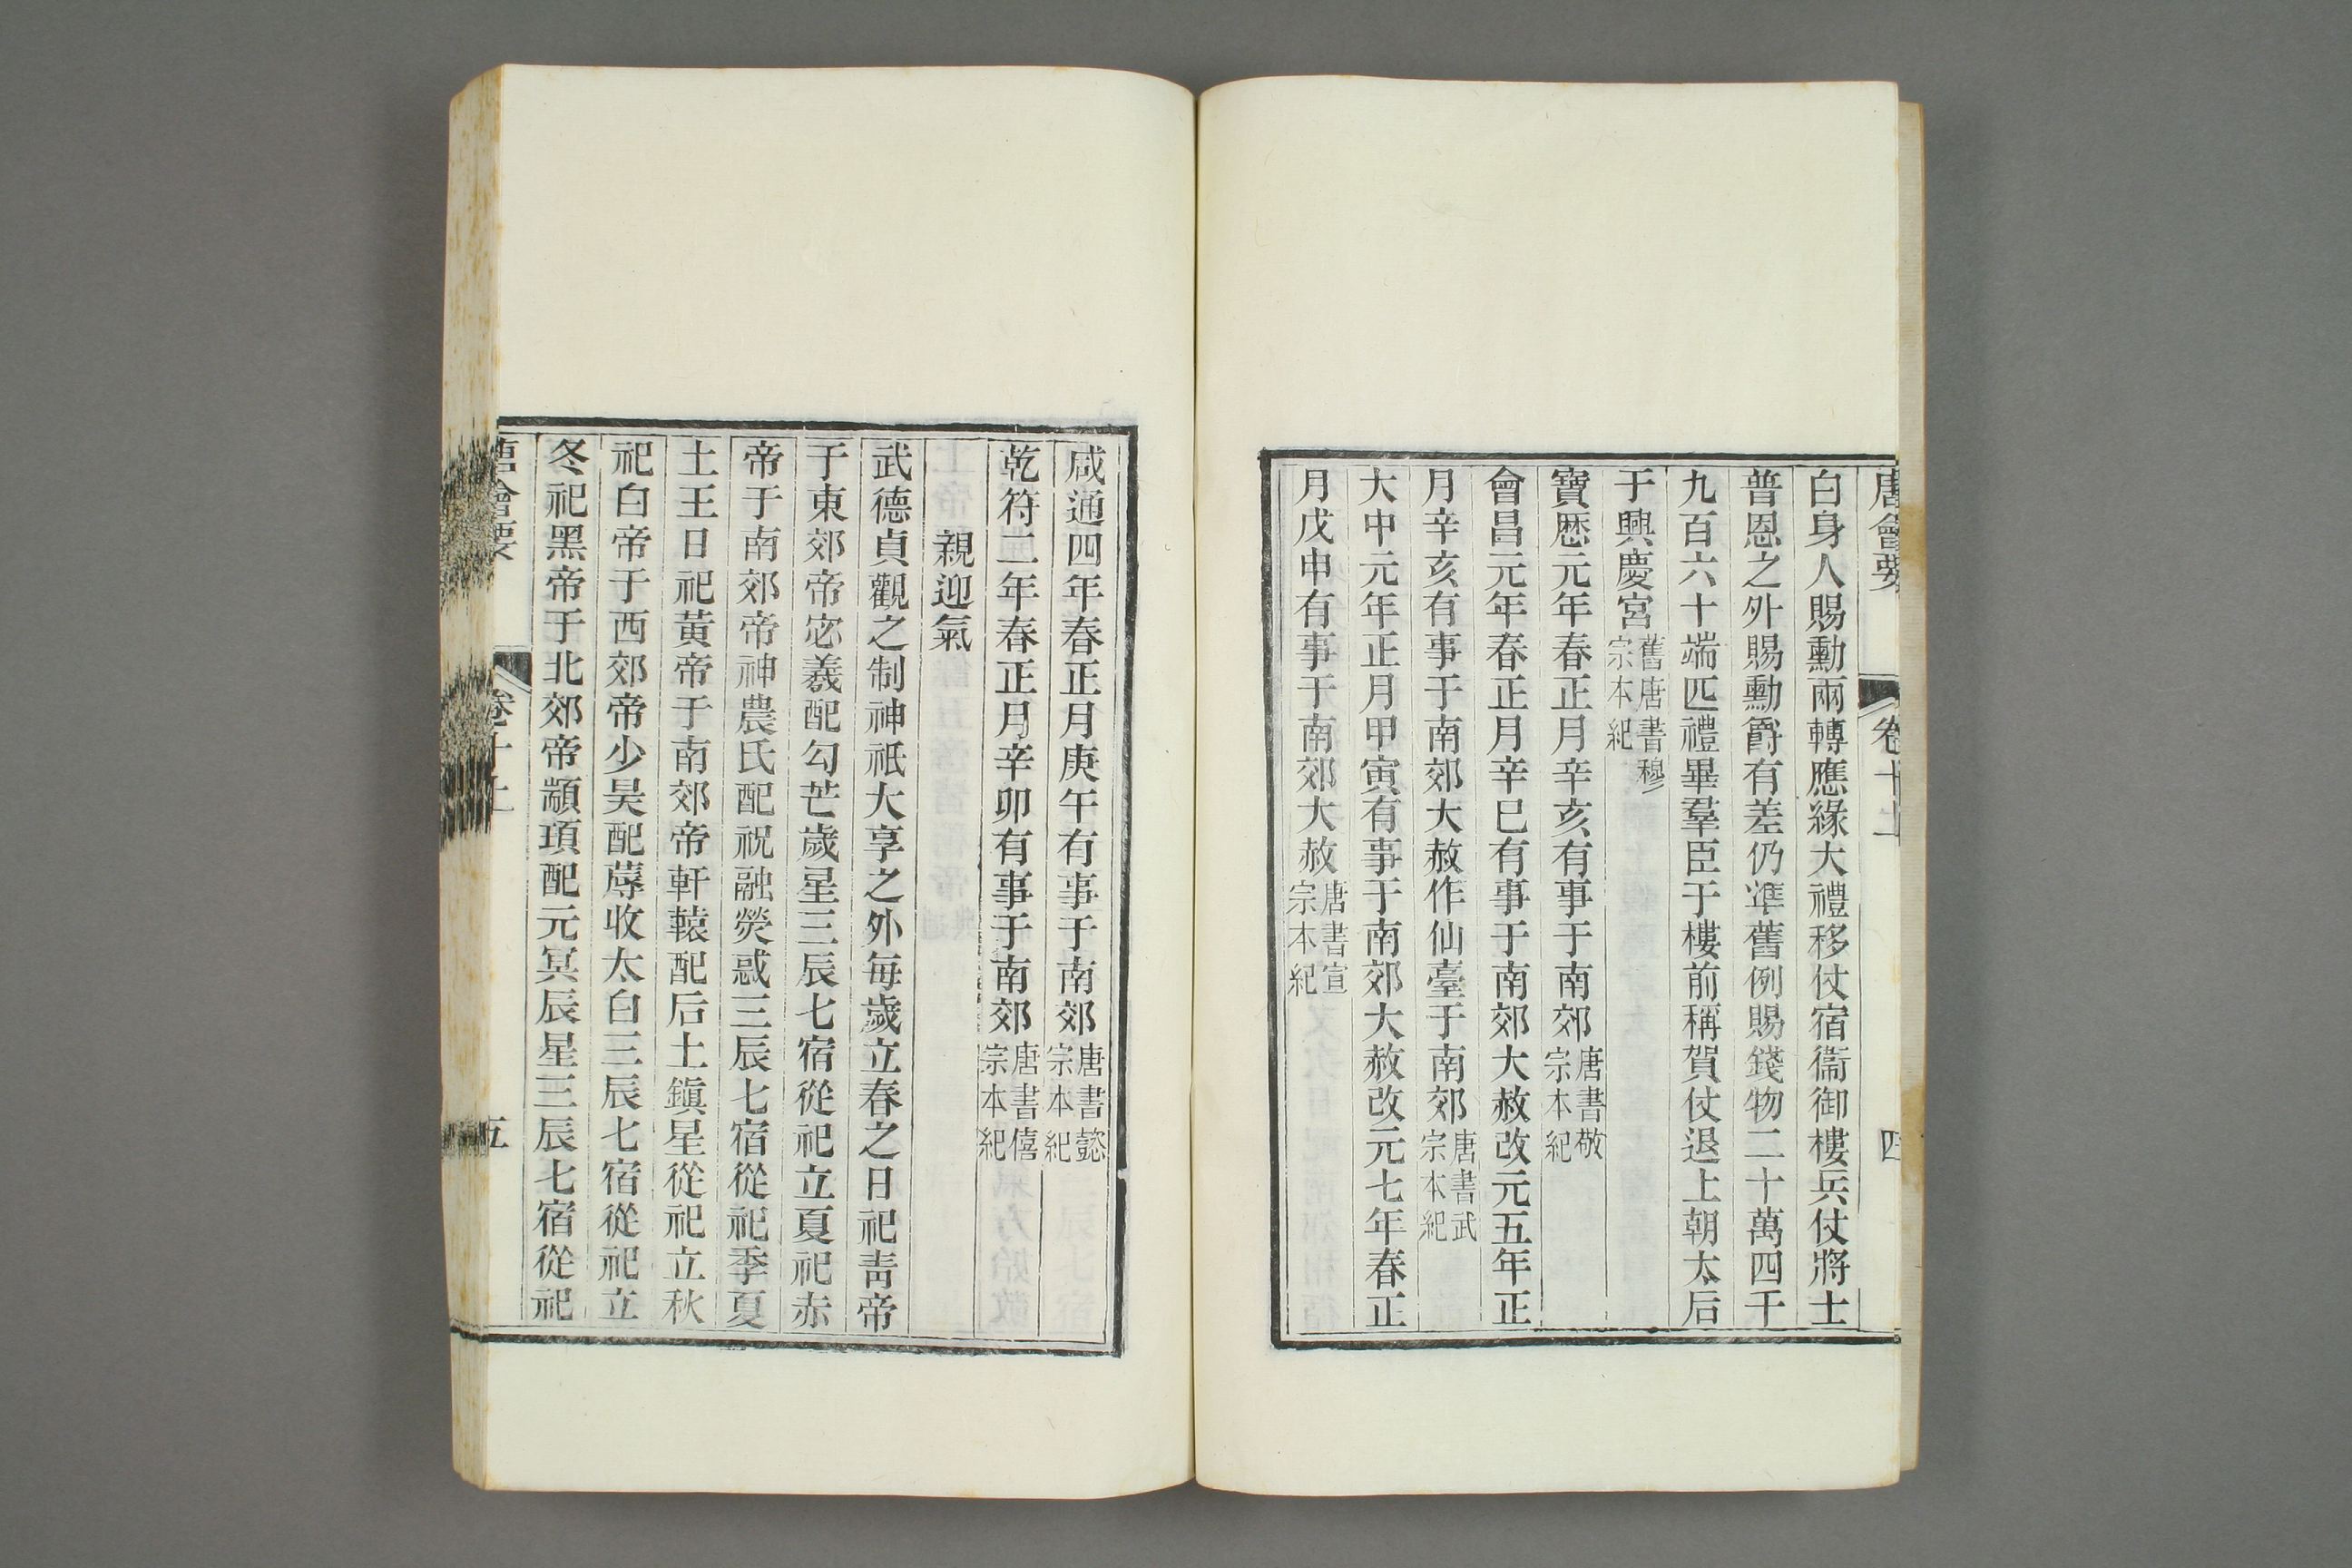 唐會要 卷十上 四
白身人賜勳兩轉應緣大禮移仗宿衞御樓兵仗將士
普恩之外賜勳爵有差仍準舊例賜錢物二十萬四千
九百六十端匹禮畢羣臣于樓前稱賀仗退上朝太后
于興慶宮舊唐書穆宗本紀
寶歷元年春正月辛亥有事于南郊唐書敬宗本紀
會昌元年春正月辛巳有事于南郊大赦改元五年正
月辛亥有事于南郊大赦作仙臺于南郊唐書武宗本紀
大中元年正月甲寅有事于南郊大赦改元七年春正
月戊申有事于南郊大赦唐書宣宗本紀
咸通四年春正月庚午有事于南郊唐書懿宗本紀
乾符二年春正月辛卯有事于南郊唐書僖宗本紀
親迎氣
武德貞觀之制神祇大享之外每歲立春之日祀靑帝
于東郊帝宓羲配勾芒歲星三辰七宿從祀立夏祀赤
帝于南郊帝神農氏配祝融熒惑三辰七宿從祀季夏
土王日祀黃帝于南郊帝軒轅配后土鎭星從祀立秋
祀白帝于西郊帝少昊配蓐收太白三辰七宿從祀立
冬祀黑帝于北郊帝顓頊配元冥辰星三辰七宿從祀
唐會要 卷十上 五